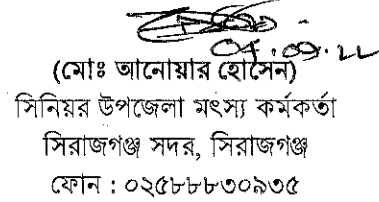 ০৭.০৭.২২
(মোঃ আনোয়ার হোসেন)
সিনিয়র উপজেলা মৎস্য কর্মকর্তা
সিরাজগঞ্জ সদর, সিরাজগঞ্জ
ফোন : ০২৫৮৮৮৩০৯৩৫